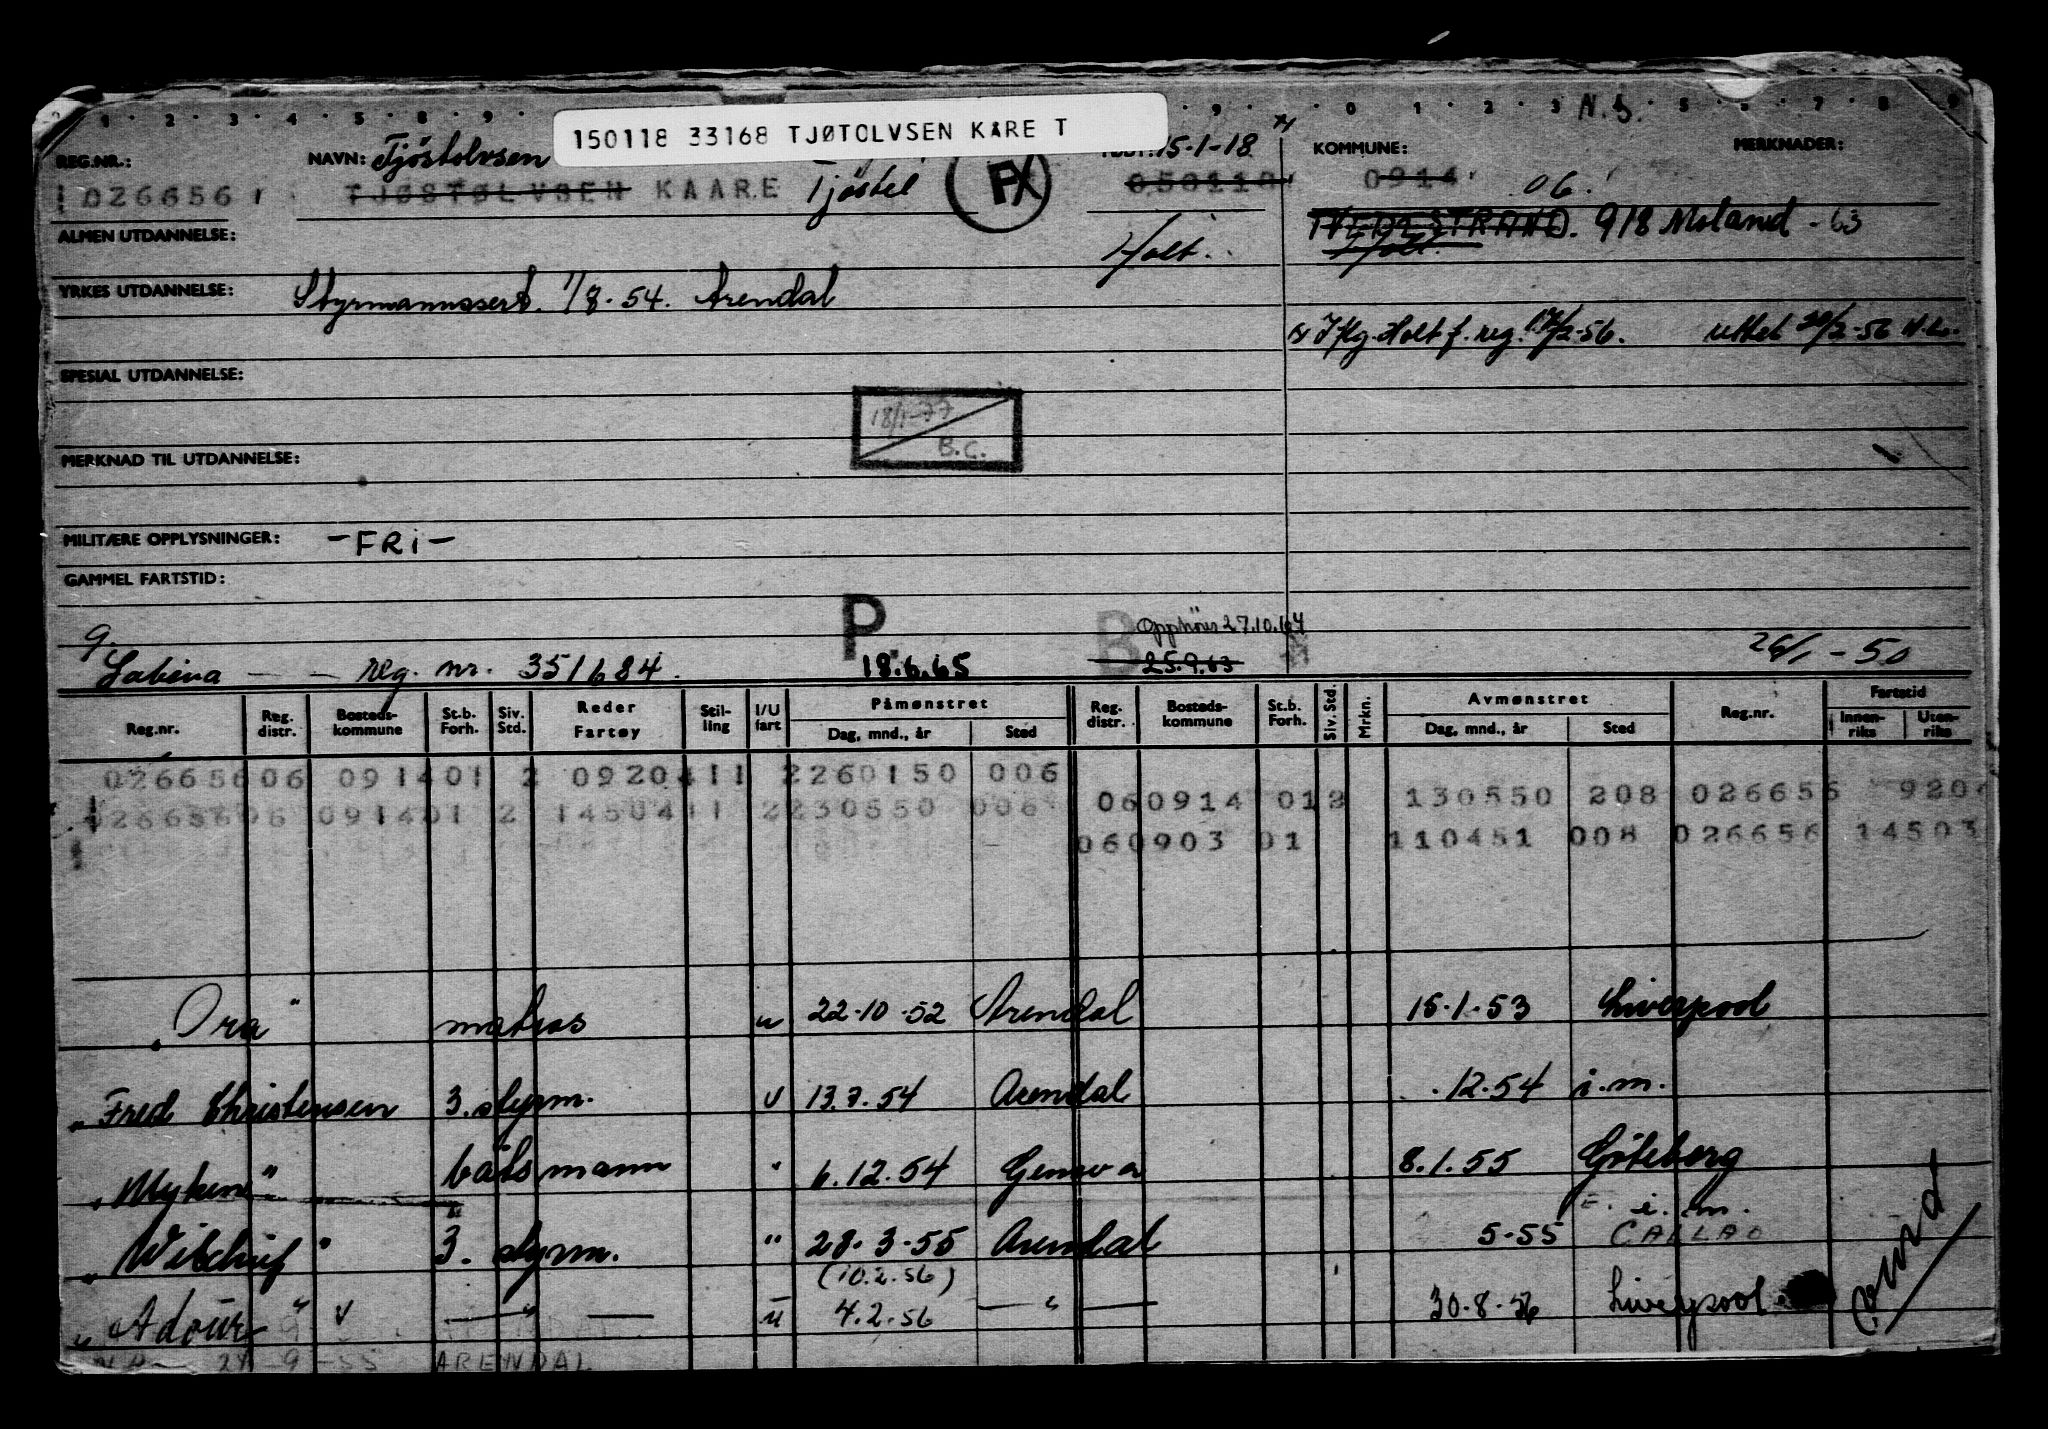 1 2 3 4 5 8 9 9 0 1 2 3 N.S. 5 6 7 8 9
150118 33168 TJØTOLVSEN KARE T
REG.NR.: NAVN: Tjöstolvsen 15-1-18 KOMMUNE: MERKNADER:
026656 TJØSTØLVSEN KAARE Tjöstel FX 0914 06.
ALMEN UTDANNELSE: Holt. TVEDESTRAND. 918 Moland - 63
Holt.
YRKES UTDANNELSE: Styrmannssert. 1/8-54. Arendal
Holt f. reg. 17/2-56. uttet 20/2-56
SPESIAL UTDANNELSE:
18/1-77
B.C.
MERKNAD TIL UTDANNELSE:
MILITÆRE OPPLYSNINGER: - FRi -
GAMMEL FARTSTID:
P B Opphöis 27.10.64
Sabina — — reg. nr. 351684. 18.6.65 25.9.63 26/1 - 50
Reg.nr. Reg. distr. Bosteds-kommune St.b. Forh. Siv. Std. Reder Fartøy Stil-ling I/U fart Påmønstret Dag, mnd., år Sted Reg. distr. Bosteds-kommune St.b. Forh. Siv. Std. Mrkn. Avmønstret Dag, mnd., år Sted Reg.nr. Fartstid Innen-riks Uten-riks
02665606 091401 2 0920411 2260150 006
060914 012 130550 208 026656 920
02665606 091401 2 1450411 2230550 006
060903 01 110451 008 026656 14503
"Ora" matros u 22-10-52 Arendal 15-1-53 Liverpool
"Fred Christensen 3. styrm. U 13.7.54 Arendal .12.54 i.m.
"Myken" båtsmann " 6.12.54 Genova 8.1.55 Göteborg
i. m.
"Wilchief" 3. styrm. " 28-3-55 Arendal 5-55 CALLAO
(10.2.56)
"Adour" V — " — u 4.2.56 — " — 30-8-56 Liverpool
27-9-55 ARENDAL